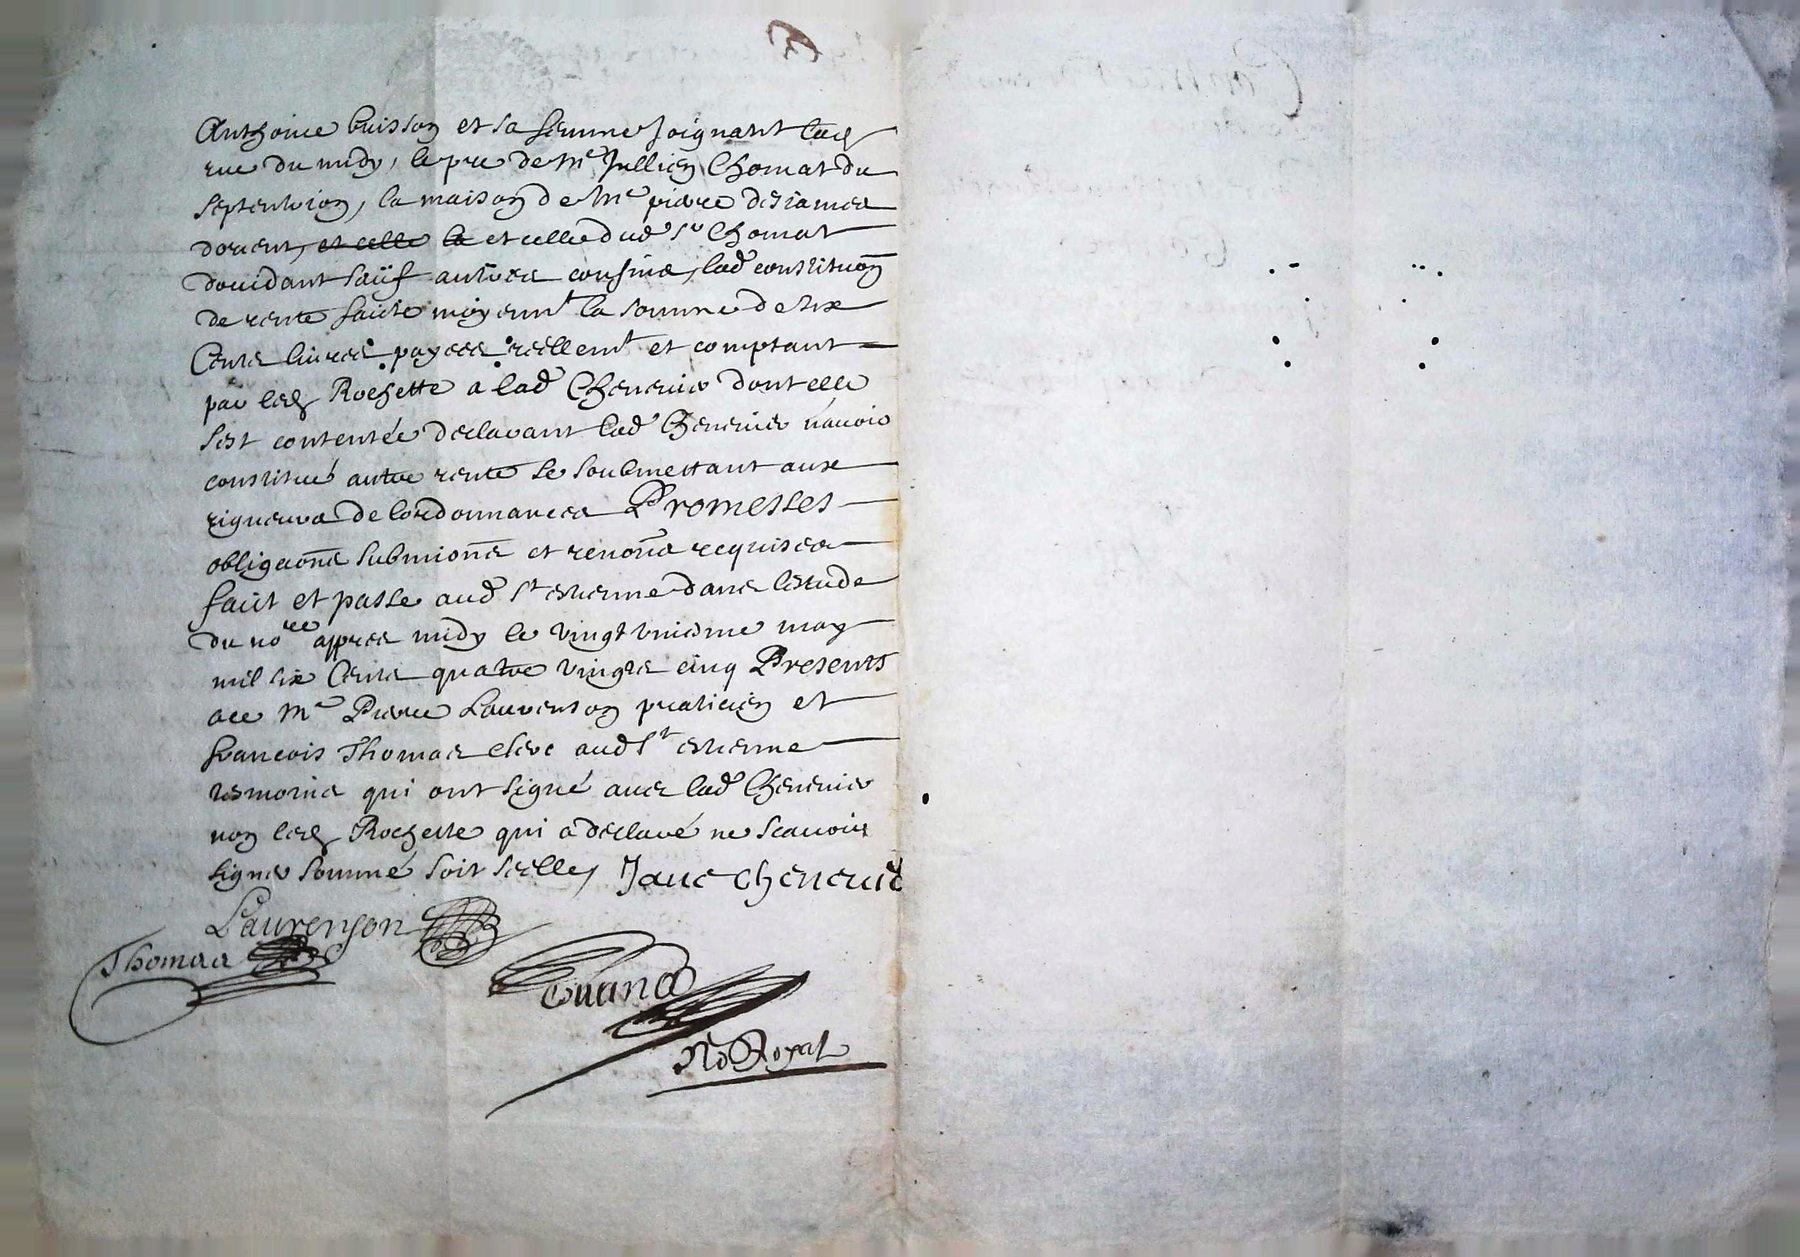 Anthoine buisson et sa femme joignant lad
rue du midy, le pre de Me Jullien Chomat du
septentrion, la maison de Me pierre desiames
dorient, et celle la et celle dud Sr Chomat
doccidant sauf autres confins, lad constituon
de rente faicte moyennt la somme de six
Cents livres payees reellemt et comptant
par led Rochette a lad Chenevie dont elle
sest contentée declarant lad Chenevier navoir
constitué autre rente se soubmettant aux
rigueurs de lordonnances Promesses
obligaons submions et renons requises
faict et passe aud St estienne dans lestude
du nore appres midy le vingt uniesme may
mil six Cents quatre vingts cinq Presents
ace Me Pierre Laurenson praticien et
francois Thomas clerc aud St estienne
tesmoins qui ont signé avec lad Chenevier
non led Rochette qui a declaré ne scavoir
signer sommé soit scelle, Jane chenevie
Laurenson
Thomas
No Royal